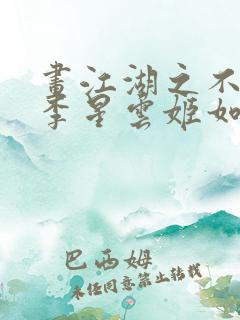 畫江湖之不
李星雲姬如
巴西姆
未经同意禁止转载